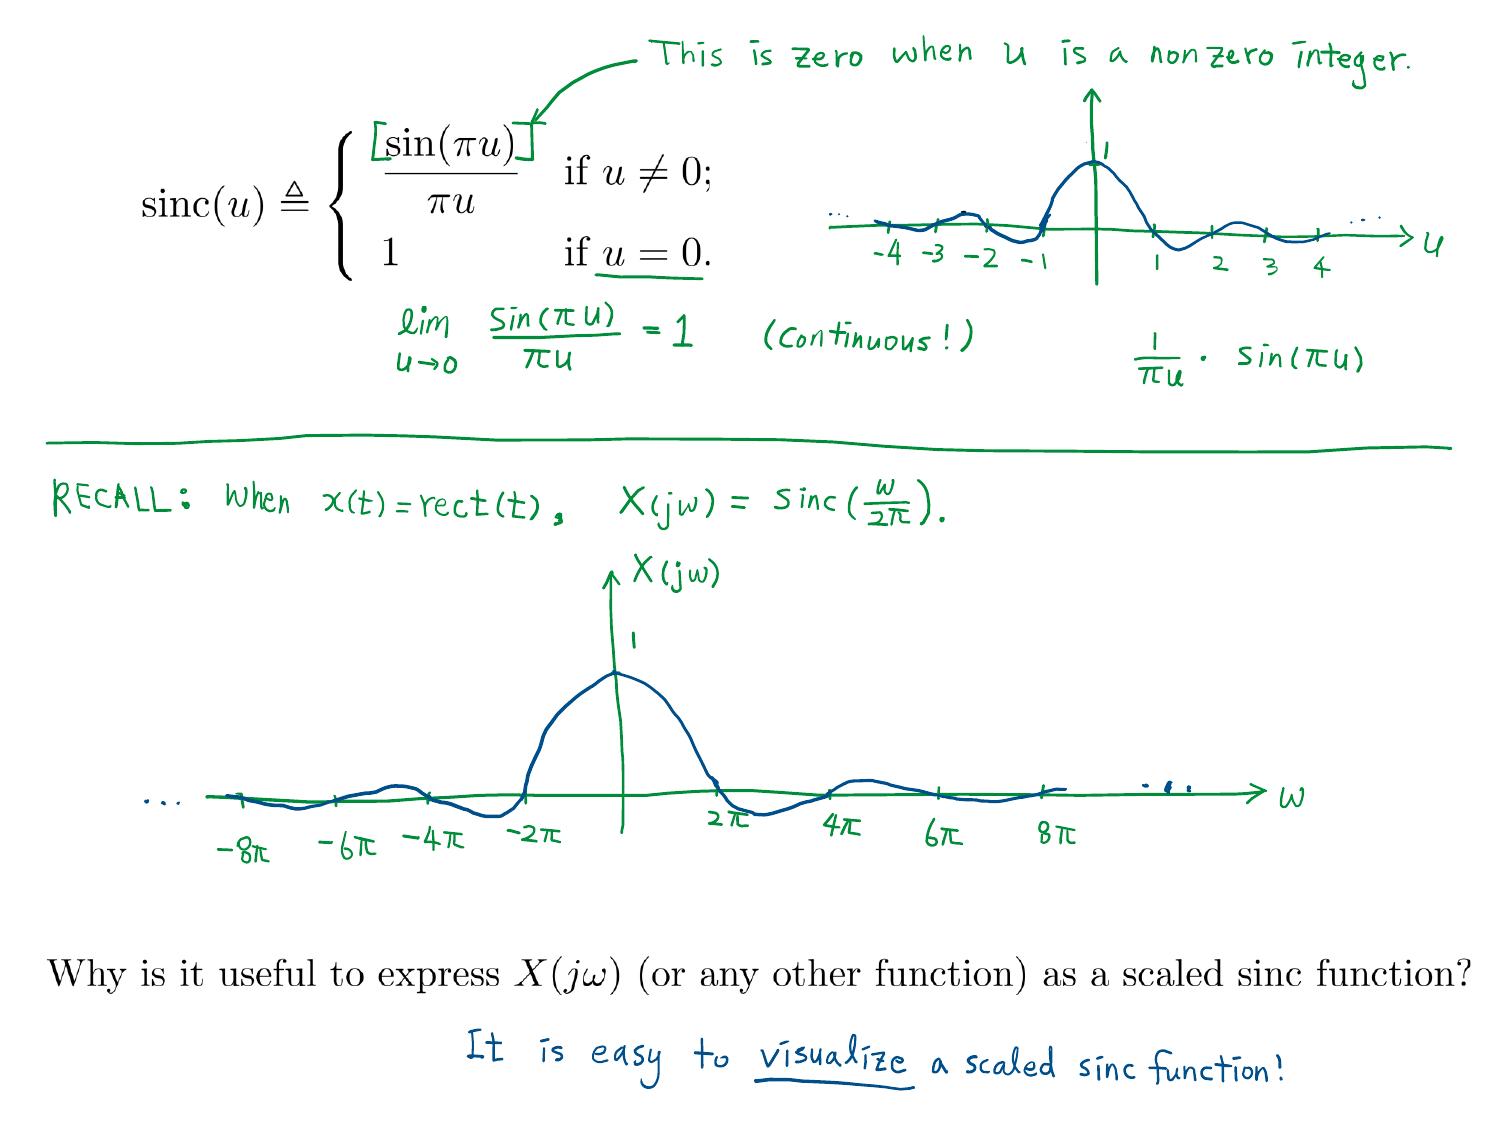 This is zero when u is a nonzero integer.
sinc(u) ≜ { [sin(πu)] / πu if u ≠ 0;
1 if u = 0.
1
... -4 -3 -2 -1 1 2 3 4 ... u
lim u→0 sin(πu) / πu = 1 (Continuous!)
1/πu · sin(πu)
RECALL: When x(t) = rect(t), X(jω) = sinc(ω/2π).
X(jω)
1
... ... ω
-8π -6π -4π -2π 2π 4π 6π 8π
Why is it useful to express X(jω) (or any other function) as a scaled sinc function?
It is easy to visualize a scaled sinc function!